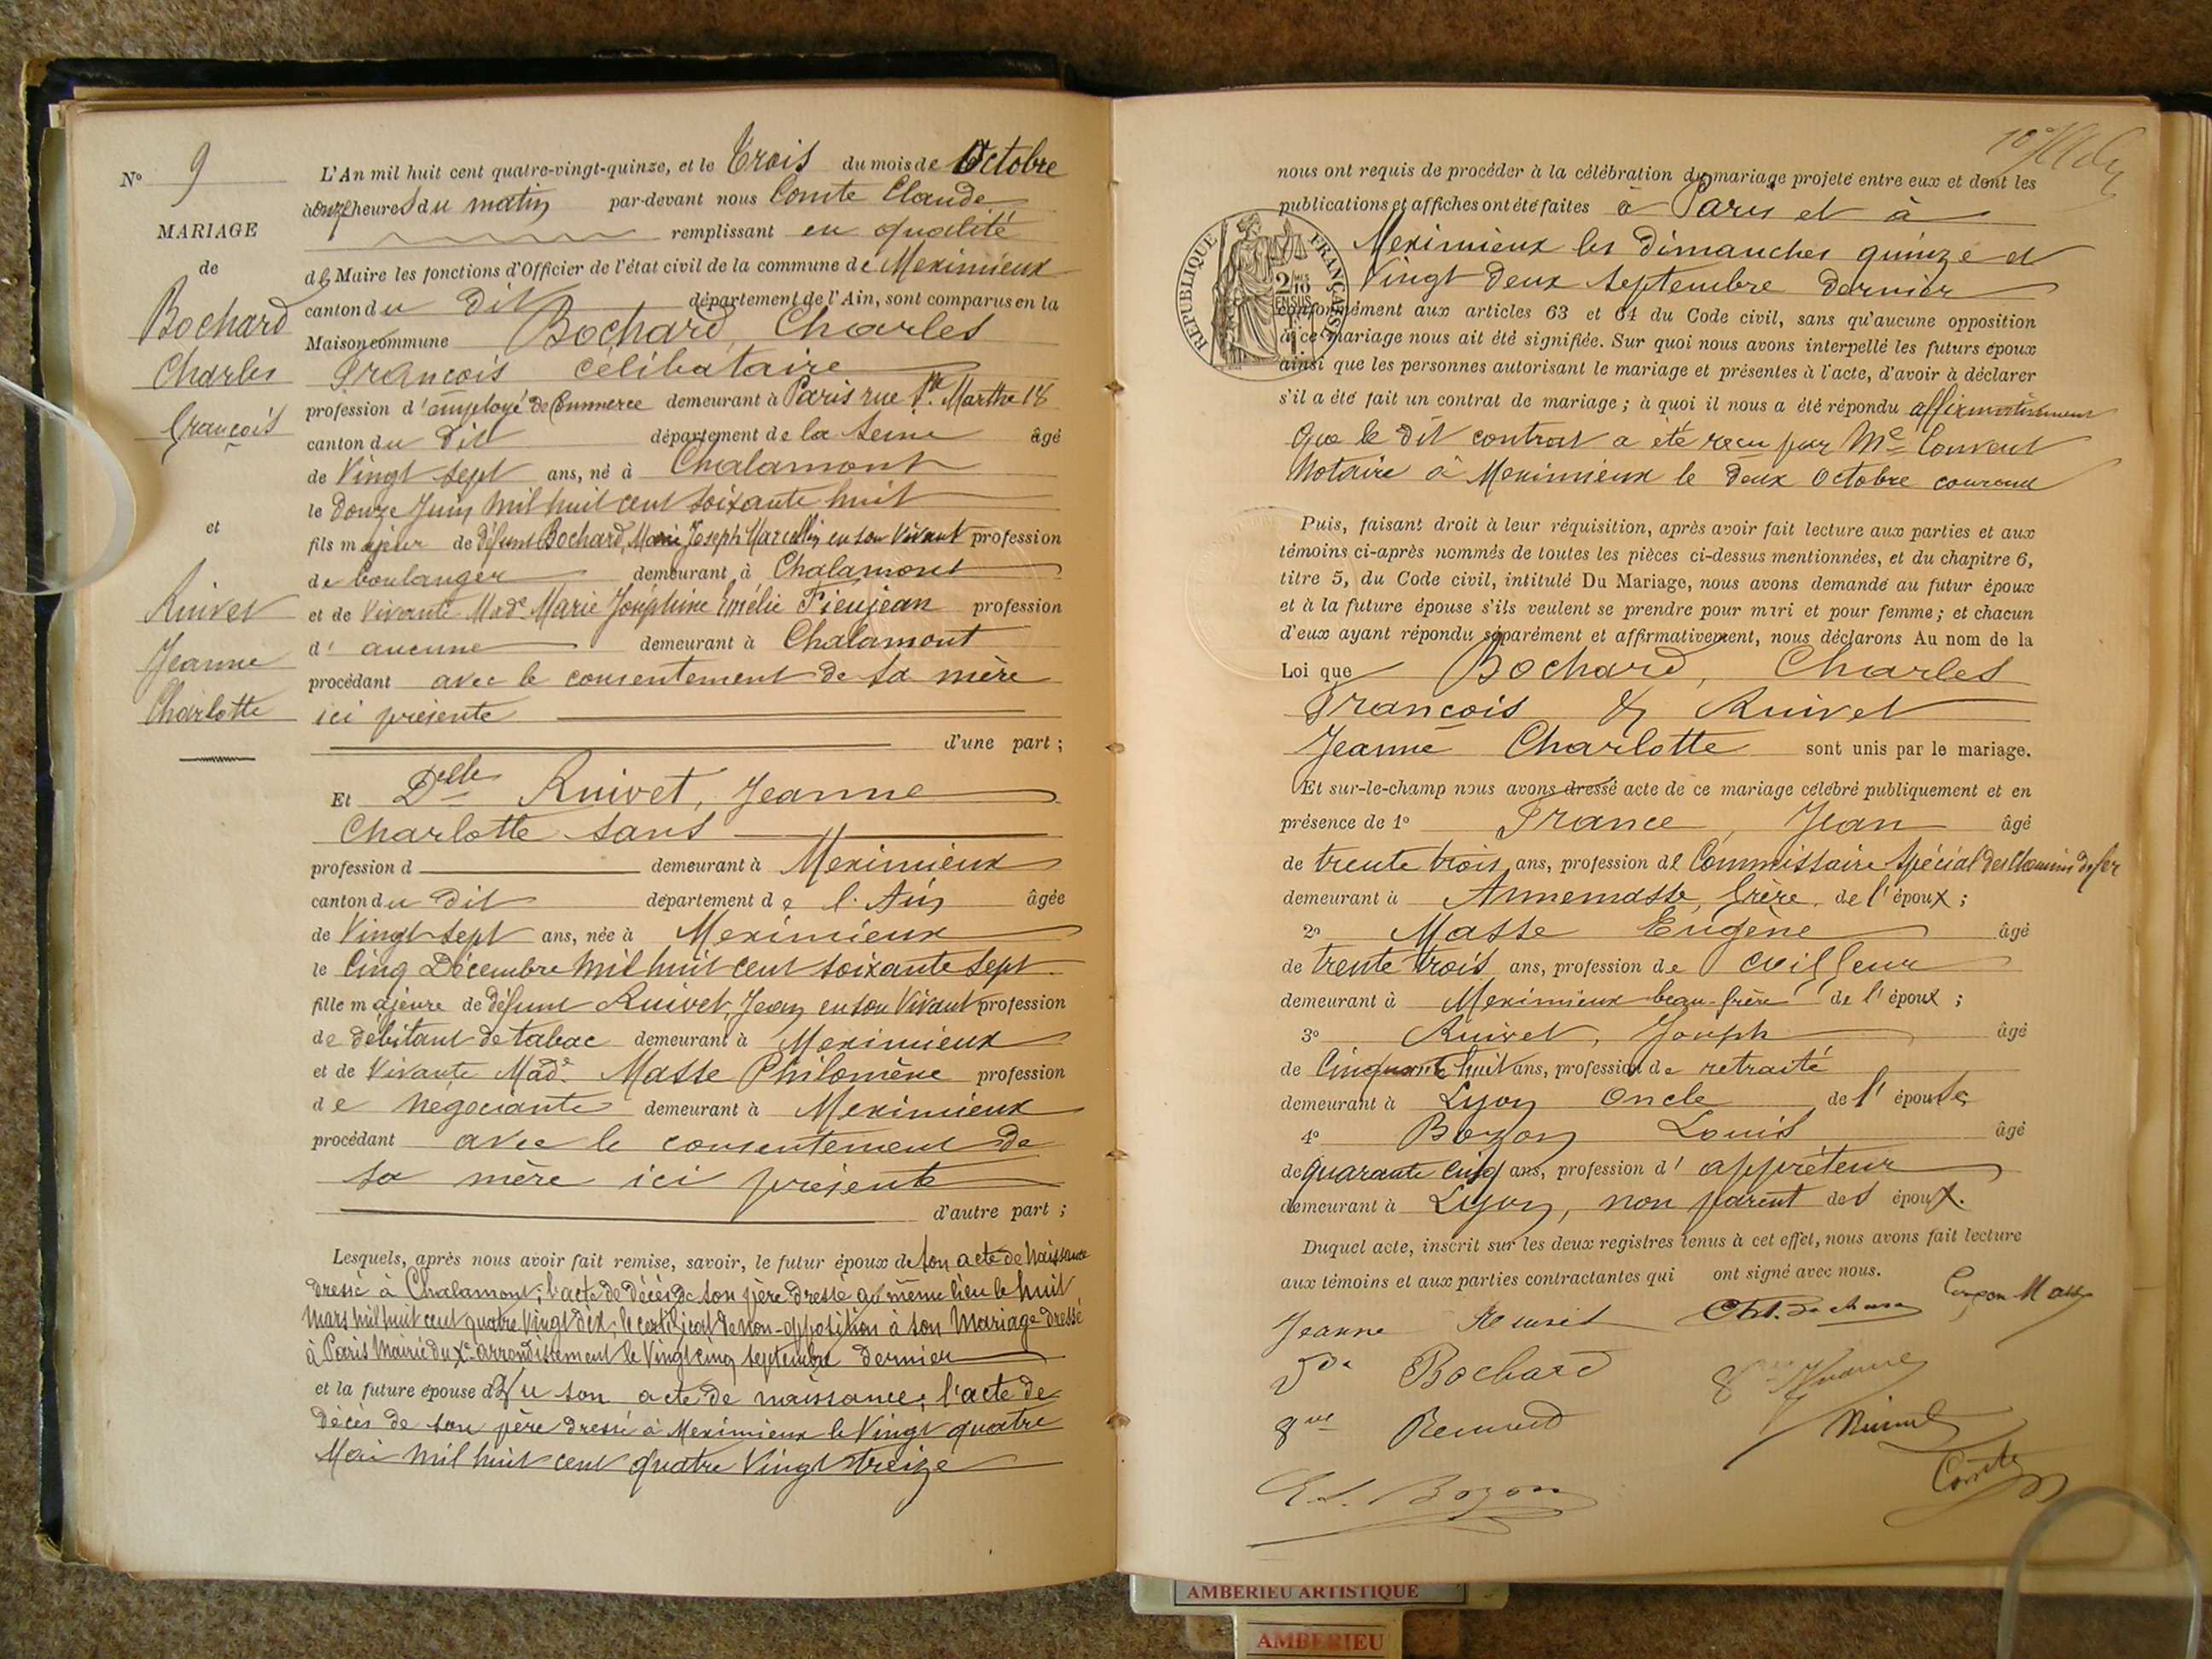 N° 9
MARIAGE
de
Bochard
Charles
François
et
Ruivet
Jeanne
Charlotte
L'An mil huit cent quatre-vingt-quinze, et le Trois du mois de Octobre
à onze heures du matin par-devant nous Comte Claude
remplissant en qualité
de Maire les fonctions d'Officier de l'état civil de la commune de Meximieux
canton du dit département de l'Ain, sont comparus en la
Maison commune Bochard, Charles
François célibataire
profession d'employé de Commerce demeurant à Paris rue Ste Marthe 18
canton du dit département de la Seine âgé
de Vingt sept ans, né à Chalamont
le Douze Juin mil huit cent soixante huit
fils majeur de défunt Bochard, Marie Joseph Marcellin en son vivant profession
de boulanger demeurant à Chalamont
et de vivante Made Marie Joséphine Emélie Pieujean profession
d'aucune demeurant à Chalamont
procédant avec le consentement de sa mère
ici présente
d'une part ;
Et Delle Ruivet, Jeanne
Charlotte sans
profession d demeurant à Meximieux
canton du dit département de l'Ain âgée
de Vingt sept ans, née à Meximieux
le Cinq Décembre mil huit cent soixante sept
fille majeure de défunt Ruivet, Jean en son vivant profession
de débitant de tabac demeurant à Meximieux
et de vivante Made Masse Philomène profession
de négociante demeurant à Meximieux
procédant avec le consentement de
sa mère ici présente
d'autre part ;
Lesquels, après nous avoir fait remise, savoir, le futur époux de son acte de Naissance
dressé à Chalamont, l'acte de décès de son père dressé au même lieu le huit
Mars mil huit cent quatre vingt dix, le certificat de non-opposition à son Mariage dressé
à Paris Mairie du Xe arrondissement le Vingt cinq septembre dernier
et la future épouse d Vu son acte de naissance, l'acte de
décès de son père dressé à Meximieux le Vingt quatre
Mai mil huit cent quatre Vingt treize
nous ont requis de procéder à la célébration du mariage projeté entre eux et dont les
publications et affiches ont été faites à Paris et à
Meximieux les dimanches quinze et
Vingt deux septembre dernier
conformément aux articles 63 et 64 du Code civil, sans qu'aucune opposition
à ce mariage nous ait été signifiée. Sur quoi nous avons interpellé les futurs époux
ainsi que les personnes autorisant le mariage et présentes à l'acte, d'avoir à déclarer
s'il a été fait un contrat de mariage ; à quoi il nous a été répondu affirmativement
Que le dit contrat a été reçu par Me Convert
Notaire à Meximieux le deux Octobre courant
RÉPUBLIQUE FRANÇAISE
2/10
EN SUS
Puis, faisant droit à leur réquisition, après avoir fait lecture aux parties et aux
témoins ci-après nommés de toutes les pièces ci-dessus mentionnées, et du chapitre 6,
titre 5, du Code civil, intitulé Du Mariage, nous avons demandé au futur époux
et à la future épouse s'ils veulent se prendre pour mari et pour femme ; et chacun
d'eux ayant répondu séparément et affirmativement, nous déclarons Au nom de la
Loi que Bochard, Charles
François & Ruivet
Jeanne Charlotte sont unis par le mariage.
Et sur-le-champ nous avons dressé acte de ce mariage célébré publiquement et en
présence de 1° France, Jean âgé
de trente trois ans, profession de Commissaire Spécial des Chemins de fer
demeurant à Annemasse, frère de l'époux ;
2° Masse Eugène âgé
de trente trois ans, profession de
demeurant à Meximieux beau-frère de l'époux ;
3° Ruivet, Joseph âgé
de Cinquante huit ans, profession de retraité
demeurant à Lyon Oncle de l'épouse
4° Bozon Louis âgé
de quarante cinq ans, profession d'apprêteur
demeurant à Lyon, non parent des époux.
Duquel acte, inscrit sur les deux registres tenus à cet effet, nous avons fait lecture
aux témoins et aux parties contractantes qui ont signé avec nous.
Jeanne Ruivet Ch. Bochard Masse
Bochard
Bozon
Comte
AMBERIEU ARTISTIQUE
AMBERIEU